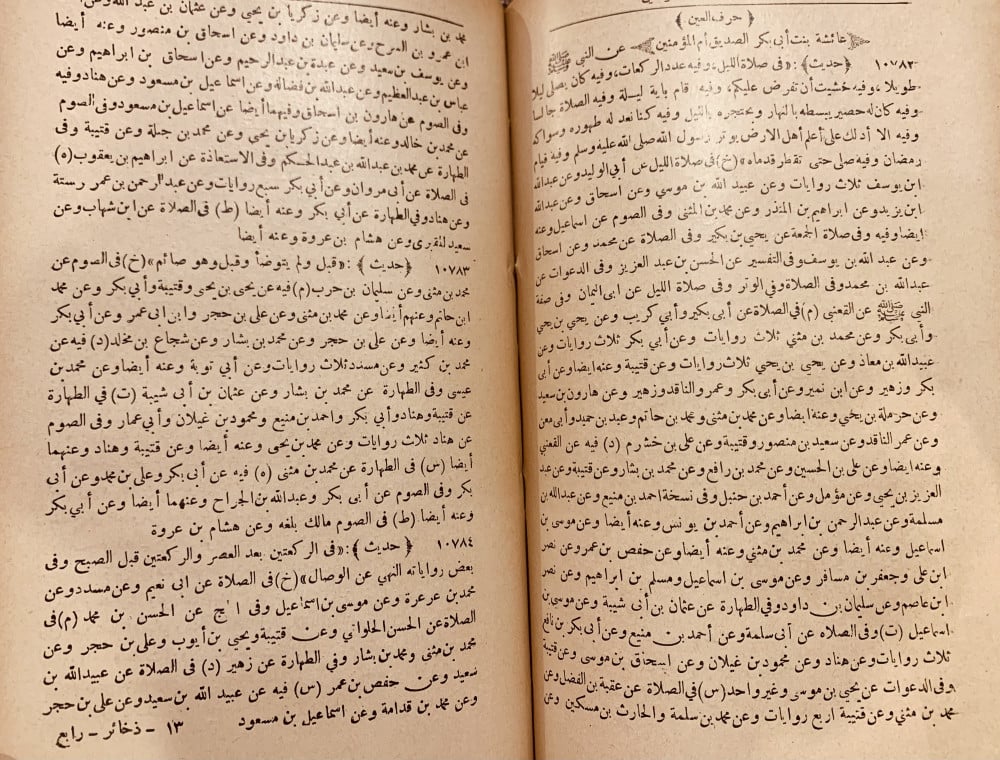 ﴿ حرف العين ﴾
﴿ عائشة بنت أبى بكر الصديق أم المؤمنين ﴾ عن النبى ﷺ
١٠٧٨٢ ﴿ حديث ﴾ : « فى صلاة الليل، وفيه عدد الركعات، وفيه كان يصلى ليلا
طويلا، وفيه خشيت أن تفرض عليكم، وفيه قام بآية ليلة وفيه الصلاة جالسا
وفيه كان له حصير يبسطه بالنهار ويحتجره بالليل وفيه كنا نعد له طهوره وسواكه
وفيه الا أدلك على أعلم أهل الارض بوتر رسول الله صلى الله عليه وسلم وفيه قيام
رمضان وفيه صلى حتى تقطر قدماه » (خ) فى صلاة الليل عن أبى الوليد وعن عبدالله
ابن يوسف ثلاث روايات وعن عبيد الله بن موسى وعن اسحاق وعن عبدالله
ابن يزيد وعن ابراهيم بن المنذر وعن محمد بن المثنى وفى الصوم عن اسماعيل وعنه
ايضا وفيه وفى صلاة الجمعة عن يحيى بن بكير وفى الصلاة عن محمد وعن اسحاق
وعن عبد الله بن يوسف وفى التفسير عن الحسن بن عبد العزيز وفى الدعوات عن
عبدالله بن محمد وفى الصلاة وفى الوتر وفى صلاة الليل عن ابى اليمان وفى صفة
النبى ﷺ عن القعنبى (م) فى الصلاة عن أبى بكير وأبى كريب وعن يحيى بن يحيى
وأبى بكر وعن محمد بن مثنى ثلاث روايات وعن أبى بكر ثلاث روايات وعن
عبيدالله بن معاذ وعن يحيى بن يحيى ثلاث روايات وعن قتيبة وعنه ايضا وعن أبى
بكر وزهير وعن ابن نمير وعن أبى بكر وعمر والناقد وزهير وعن هارون بن سعيد
وعن حرملة بن يحيى وعنه ايضا وعن محمد بن مثنى ومحمد بن حاتم وعبد بن حميد وأبى معن
وعن عمر الناقد وعن سعيد بن منصور وقتيبة وعن على بن خشرم (د) فيه عن القعنبى
وعنه ايضا وعن على بن الحسين وعن محمد بن رافع وعن محمد بن بشار وعن قتيبة وعن عبد
العزيز بن يحيى وعن مؤمل وعن أحمد بن حنبل وفى نسخة احمد بن منيع وعن عبدالله بن
مسلمة وعن عبد الرحمن بن ابراهيم وعن أحمد بن يونس وعنه أيضا وعن موسى بن
اسماعيل وعنه أيضا وعن محمد بن مثنى وعنه أيضا وعن حفص بن عمر وعن نصر
ابن على وجعفر بن مسافر وعن موسى بن اسماعيل ومسلم بن ابراهيم وعن نصر
ابن عاصم وعن سليمان بن داود وفى الطهارة عن عثمان بن أبى شيبة وعن موسى بن
اسماعيل (ت) وفى الصلاة عن أبى سلمة وعن أحمد بن منيع وعن أبى بكر بن نافع
ثلاث روايات وعن هناد وعن محمود بن غيلان وعن اسحاق بن موسى وعن قتيبة
وفى الدعوات عن يحيى بن موسى وغير واحد (س) فى الصلاة عن عقبة بن الفضل وعن
محمد بن مثنى وعن قتيبة اربع روايات وعن محمد بن سلمة والحارث بن مسكين وعن
محمد بن بشار وعنه أيضا وعن زكريا بن يحيى وعن عثمان بن عبد الله وعن
ابن عمرو بن السرح وعن سليمان بن داود وعن اسحاق بن منصور وعنه أيضا
وعن يوسف بن سعيد وعن عبدة بن عبدالرحيم وعن اسحاق بن ابراهيم وعن
عباس بن عبد العظيم وعن عبدالله بن فضالة وعن اسماعيل بن مسعود وعن هناد وفيه
وفى الصوم عن هارون بن اسحاق وفيهما أيضا عن اسماعيل بن مسعود وفى الصوم
عن محمد بن خالد وعنه أيضا وعن زكريا بن يحيى وعن محمد بن جبلة وعن قتيبة وفى
الطهارة عن محمد بن عبدالله بن عبد الحكم وفى الاستعاذة عن ابراهيم بن يعقوب (ه)
فى الصلاة عن أبى مروان وعن أبى بكر سبع روايات وعن عبد الرحمن بن عمر رستة
وعن هناد وفى الطهارة عن أبى بكر وعنه أيضا (ط) فى الصلاة عن ابن شهاب وعن
سعيد المقبرى وعن هشام بن عروة وعنه أيضا
١٠٧٨٣ ﴿ حديث ﴾ : « قبل ولم يتوضأ وقبل وهو صائم » (خ) فى الصوم عن
محمد بن مثنى وعن سليمان بن حرب (م) فيه عن يحيى بن يحيى وقتيبة وأبى بكر وعن محمد
ابن حاتم وعنهم أيضا وعن محمد بن مثنى وعن على بن حجر وابن ابى عمر وعن أبى بكر
وعنه أيضا وعن على بن حجر وعن محمد بن بشار وعن شجاع بن مخلد (د) فيه عن
محمد بن كثير وعن مسدد ثلاث روايات وعن أبى توبة وعنه أيضا وعن محمد بن
عيسى وفى الطهارة عن محمد بن بشار وعن عثمان بن أبى شيبة (ت) فى الطهارة
عن قتيبة وهناد وأبى بكر واحمد بن منيع ومحمود بن غيلان وأبى عمار وفى الصوم
عن هناد ثلاث روايات وعن محمد بن يحيى وعنه أيضا وعن قتيبة وهناد وعنهما
أيضا (س) فى الطهارة عن محمد بن مثنى (ه) فيه عن أبى بكر وعلى بن محمد وعن أبى
بكر وفى الصوم عن أبى بكر وعبدالله بن الجراح وعنهما أيضا وعن أبى بكر
وعنه أيضا (ط) فى الصوم مالك بلغه وعن هشام بن عروة
١٠٧٨٤ ﴿ حديث ﴾ : « فى الركعتين بعد العصر والركعتين قبل الصبح وفى
بعض رواياته النهى عن الوصال » (خ) فى الصلاة عن ابى نعيم وعن مسدد وعن
محمد بن عرعرة وعن موسى بن اسماعيل وفى الحج عن الحسن بن محمد (م) فى
الصلاة عن الحسن الحلوانى وعن قتيبة ويحيى بن أيوب وعلى بن حجر وعن
محمد بن مثنى ومحمد بن بشار وفى الطهارة عن زهير (د) فى الصلاة عن عبيدالله بن
سعيد وعن حفص بن عمر (س) فيه عن عبيد الله بن سعيد وعن على بن حجر
وعن محمد بن قدامة وعن اسماعيل بن مسعود
١٣ - ذخائر - رابع